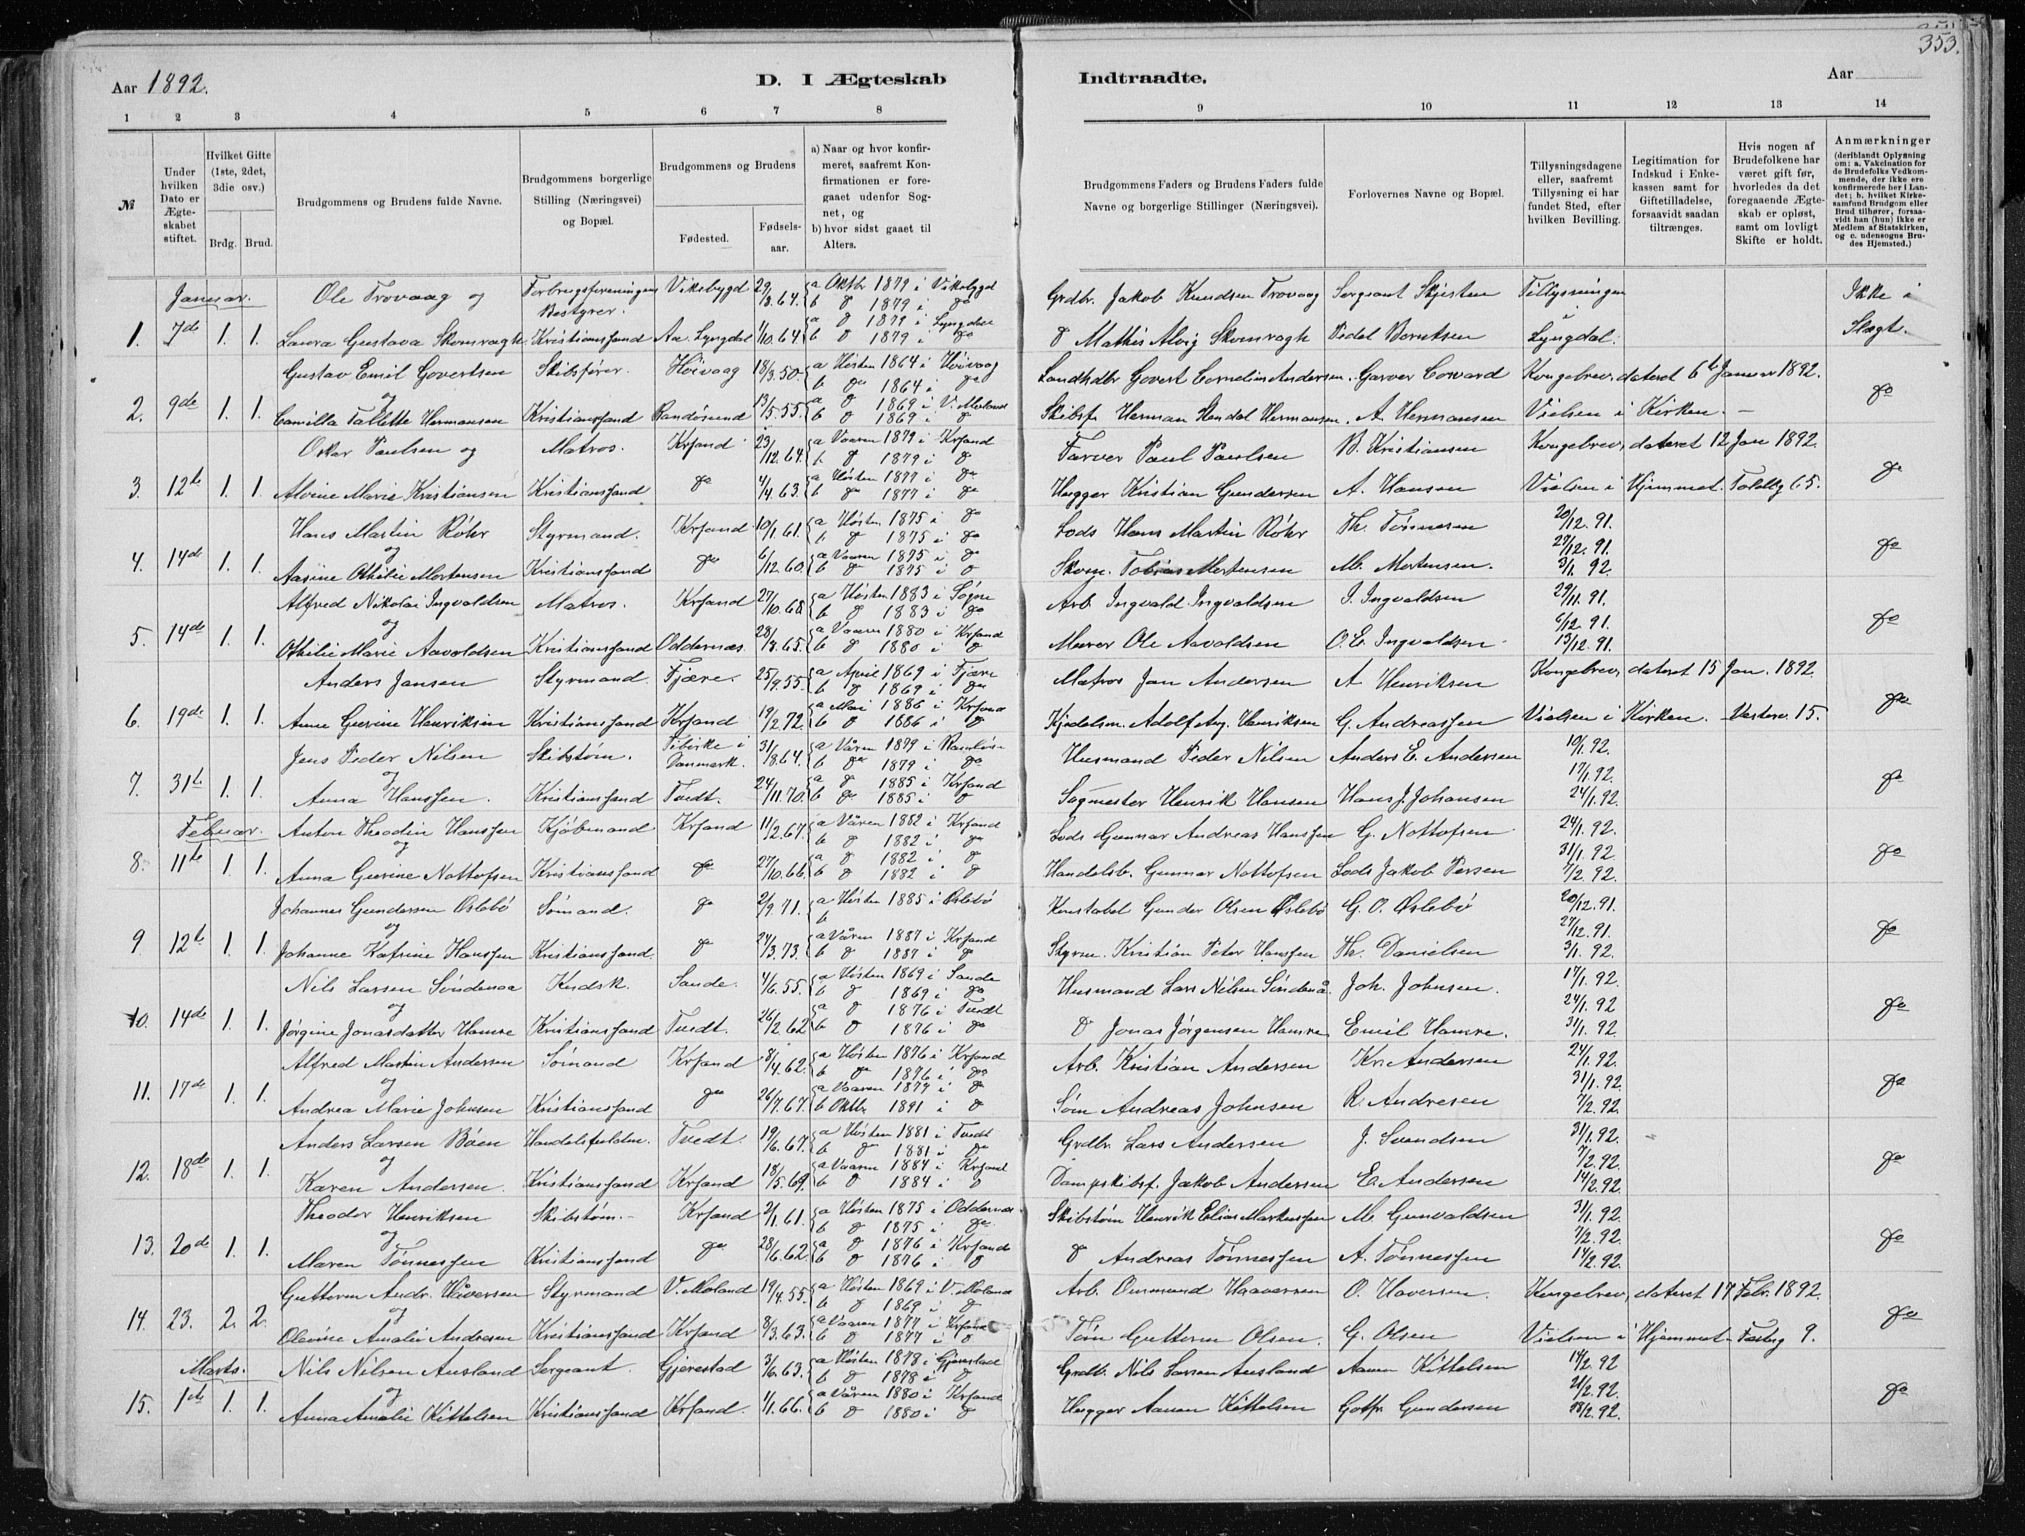 353.
Aar 1892.
D. I Ægteskab
Indtraadte.
Aar
1 2 3 4 5 6 7 8
9 10 11 12 13 14
№
Under hvilken Dato er Ægteskabet stiftet.
Hvilket Gifte (1ste, 2det, 3die osv.)
Brdg. Brud.
Brudgommens og Brudens fulde Navne.
Brudgommens borgerlige Stilling (Næringsvei) og Bopæl.
Brudgommens og Brudens
Fødested.
Fødselsaar.
a) Naar og hvor konfirmeret, saafremt Konfirmationen er foregaaet udenfor Sognet, og
b) hvor sidst gaaet til Alters.
Brudgommens Faders og Brudens Faders fulde Navne og borgerlige Stillinger (Næringsvei).
Forlovernes Navne og Bopæl.
Tillysningsdagene eller, saafremt Tillysning ei har fundet Sted, efter hvilken Bevilling.
Legitimation for Indskud i Enkekassen samt for Giftetilladelse, forsaavidt saadan tiltrænges.
Hvis nogen af Brudefolkene har været gift før, hvorledes da det foregaaende Ægteskab er opløst, samt om lovligt Skifte er holdt.
Anmærkninger
(deriblandt Oplysning om: a. Vakcination for de Brudefolks Vedkommende, der ikke ere konfirmerede her i Landet; b. hvilket Kirkesamfund Brudgom eller Brud tilhører, forsaavidt han (hun) ikke er Medlem af Statskirken, og c. udensogns Brudes Hjemsted.)
Januar. Ole Trovaag og Forbrugsforeningens Bestyrer. Viksbygd 29/3.64. a Oktb. 1879 i Vikebygd b do 1879 i do Grdbr. Jakob Knudsen Trovaag Sergeant Skjesten Tillysningen Ikke i
1. 7de 1. 1. Laura Gustava Skomvagh Kristianssand Au. Lyngdal 1/10.64 a do 1879 i Lyngdal b do 1879 i do do Mathis Alvig Skomvagh Pedal Berntsen i Lyngdal. Slægt.
Gustav Emil Govertsen Skibsfører. Høivaag 18/3.50. a Høsten 1864 i Høivaag b do 1864 i do Landhdbr Govert Cornelius Andersen. Garver Coward Kongebrev, dateret 6te Januar 1892.
2. 9de 1. 1. og Camilla Tallette Hermansen Kristianssand Randøsund 13/5.55. a do 1869 i V. Moland b do 1869 i do Skibsf. Herman Hendal Hermansen. A. Hermansen Vielsen i Kirken. — do
Oskar Paulsen og Matros. Krsand 23/12.64. a Vaaren 1879 i Krsand b do 1879 i do Farver Paul Paulsen B. Kristiansen Kongebrev, dateret 12 Jan 1892.
3. 12te 1. 1. Alvine Marie Kristiansen Kristianssand do 4/4.63. a Høsten 1877 i do b do 1877 i do Hugger Kristian Gundersen A. Hansen Vielsen i Hjemmet. Toldbg 65. do
Hans Martin Röhr Styrmand. Krsand 10/1.61. a Høsten 1875 i do b do 1875 i do Lods Hans Martin Röhr Th. Tönnesen 20/12.91.
4. 14de 1. 1. og Aasine Othilie Mortensen Kristianssand do 6/12.60. a Vaaren 1875 i do b do 1875 i do Skom. Tobias Mortensen M. Mortensen. 27/12.91. 3/1.92. do
Alfred Nikolai Ingvaldsen Matros. Krsand 27/10.68 a Høsten 1883 i Søgne b do 1883 i do Arb. Ingvald Ingvaldsen I. Ingvaldsen 29/11.91.
5. 14de 1. 1. og Othilie Marie Aavoldsen Kristianssand Oddernæs 28/3.65. a Vaaren 1880 i Krsand b do 1880 i do Murer Ole Aavoldsen O. E. Ingvaldsen 6/12.91. 13/12.91. do
Anders Jansen Styrmand. Fjære. 25/9.55. a April 1869 i Fjære b do 1869 i do Matros Jan Andersen A. Henriksen Kongebrev, dateret 15 Jan. 1892.
6. 19de 1. 1. Anne Gurine Henriksen Kristianssand Krsand 19/2.72. a Mai 1886 i Krsand b do 1886 i do Kjedelsm. Adolf Aug. Henriksen G. Andreassen Vielsen i Kirken. Vesterv. 15. do
Jens Peder Nilsen Skibstøm. Tibirke i Danmark. 31/8.64. a Våren 1879 i b do 1879 i do Husmand Peder Nilsen Anders E. Andersen 10/1.92.
7. 31te 1. 1. og Anna Hanssen. Kristianssand Tvedt. 24/11.70. a do 1885 i Krsand b do 1885 i do Sagmester Henrik Hansen Hans J. Johansen 17/1.92. 24/1.92. do
Februar. Anton Theodin Hanssen Kjøbmand Krsand 11/2.67. a Våren 1882 i Krsand b do 1882 i do Lods Gunnar Andreas Hanssen G. Nottofsen 24/1.92.
8. 11te 1. 1. og Anna Gurine Nottofsen Kristianssand do 27/10.66. a do 1882 i do b do 1882 i do Handelsb. Gunnar Nottofsen Lods Jakob Persen 31/1.92 7/2.92. do
Johannes Gundersen Øslebø Sømand. do 2/9.71. a Høsten 1885 i Øslebø b Konstabel Gunder Olsen Øslebø G. O. Øslebø 20/12.91.
9. 12te 1. 1. og Johanne Katrine Hanssen Kristianssand do 24/3.73. a Våren 1887 i Krsand b do 1887 i do Styrm. Kristian Peter Hanssen Th. Danielsen 27/12.91 3/1.92. do
Nils Larsen Söndenaa Kudsk. Sande. 4/6.55. a Høsten 1869 i Sande b do 1869 i do Husmand Lars Nilsen Söndenå. Joh. Johnsen. 17/1.92.
10. 14de 1. 1. og Jørgine Jonasdatter Hamre Kristianssand Tvedt. 26/2.62 a do 1876 i Tvedt b do 1876 i do do Jonas Jørgensen Hamre Emil Hamre. 24/1.92 31/1.92 do
Alfred Martin Andersen Sømand Krsand 8/4.62. a Høsten 1876 i Krsand b do 1876 i do Arb. Kristian Andersen Kr. Andersen 24/1.92.
11. 17de 1. 1. og Andrea Marie Johnsen Kristianssand do 26/7.67. a Vaaren 1877 i do b Oktbr 1891 i do Søm Andreas Johnsen R. Andresen 31/1.92. 7/2.92. do
Anders Larsen Bøen Handelsfuldm. Tvedt. 19/6.67. a Høsten 1881 i Tvedt b do 1881 i do Grdbr. Lars Andersen J. Svendsen 31/1.92.
12. 18de 1. 1. og Karen Andersen. Kristianssand Krsand 18/5.69. a Vaaren 1884 i Krsand b do 1884 i do Dampskibsf. Jakob Andersen E. Andersen 7/2.92. 14/2.92. do
Theodor Henriksen Skibstøm. Krsand 2/1.61. a Høsten 1875 i Oddernæs b do 1875 i do Skibstøm Henrik Elias Markussen M. Gunvaldsen 31/1.92.
13. 20de 1. 1. og Maren Tønnessen Kristianssand do 28/6.62. a do 1876 i Krsand b do 1876 i do do Andreas Tønnessen A. Tønnessen 7/2.92. 14/2.92. do
Guttorm Andr. Håversen Styrmand V. Moland 19/4.55. a Høsten 1869 i V. Moland b do 1869 i do Arb. Ounmund Haaversen O. Haversen. Kongebrev, dateret 17 Febr. 1892.
14. 23. 2. 2. og Olevine Amalie Andresen Kristianssand Krsand 8/3.63. a Vaaren 1877 i Krsand b do 1877 i do Tøm Guttorm Olsen. G. Olsen Vielsen i Hjemmet Festng 9. do
Marts. Nils Nilsen Ausland Sergeant. Gjerestad 3/6.63. a Høsten 1878 i Gjerestad b do 1878 i do Grdb. Nils Larsen Ausland Aanen Kittelsen 14/2.92
15. 1ste 1. 1. og Anna Amalie Kittelsen Kristianssand Krsand. 1/1.66. a Våren 1880 i Krsand b do 1880 i do Hugger Aanen Kittelsen Gottfr. Gundersen 21/2.92. 28/2.92. do